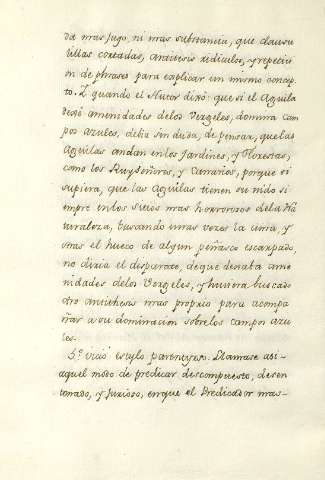 da mas jugo, ni mas substancia, que clausu
lillas cortadas, antitesis ridiculos, y repeticio
n de phrases para explicar un mismo concep
to. Y quando el Autor dixo: que si el Aguila
dexó amenidades delos Vergeles, domina cam
pos azules, debia sin duda, de pensar, que las
Aguilas andan enlos Jardines, y Florestas,
como los Ruyseñores, y Canarios, porque si
supiera, que las Aguilas tienen su nido si
empre enlos sitios mas horrorosos dela Na
turaleza, buscando unas vezes la cima, y
otras el hueco de algun peñasco escarpado,
no diria el disparate, de que dexaba ame
nidades delos Vergeles, y huviera buscado
otro antithesis mas proprio para acompa
ñar a su dominacion sobrelos campos azu
les.
5.º vicio estylo parentyrso. Llamase asi
aquel modo de predicar descompuesto, desen
tonado, y furioso, enque el Predicador mas